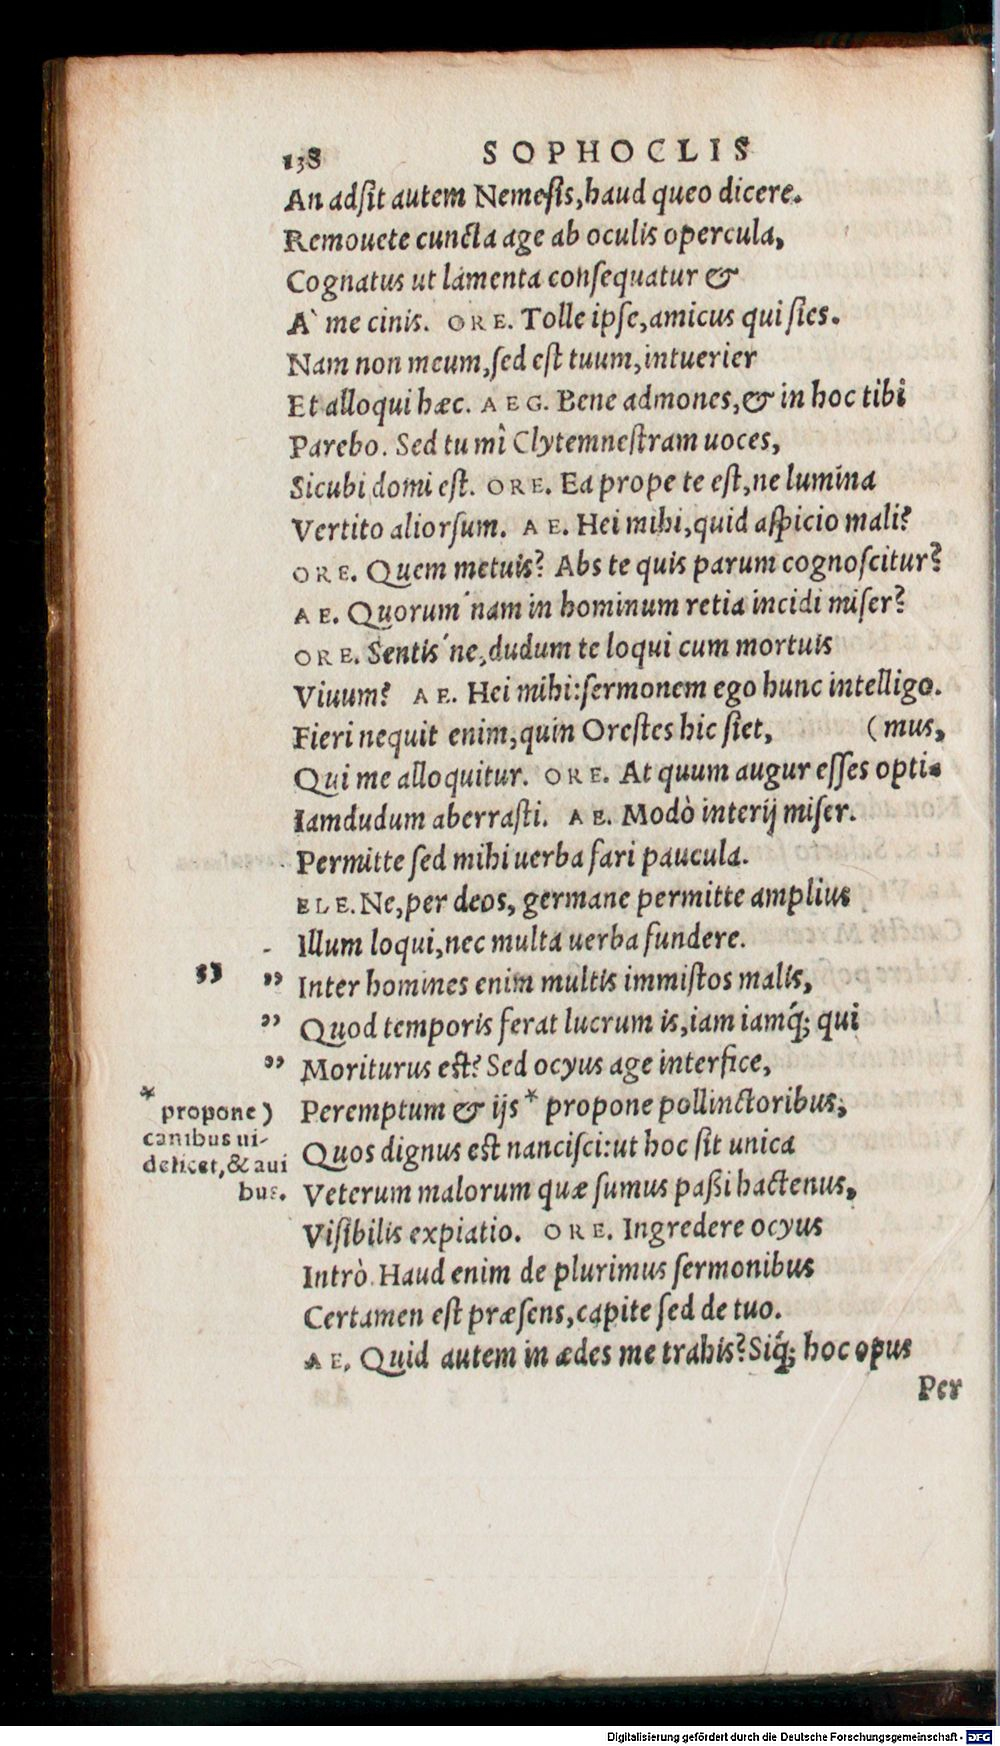 138 SOPHOCLIS
An adsit autem Nemesis, haud queo dicere.
Remouete cuncta age ab oculis opercula,
Cognatus ut lamenta consequatur &
A` me cinis. ORE. Tolle ipse, amicus qui sies.
Nam non meum, sed est tuum, intuerier
Et alloqui hæc. AEG. Bene admones, & in hoc tibi
Parebo. Sed tu mî Clytemnestram uoces,
Sicubi domi est. ORE. Ea prope te est, ne lumina
Vertito aliorsum. AE. Hei mihi, quid aspicio mali?
ORE. Quem metuis? Abs te quis parum cognoscitur?
AE. Quorum´nam in hominum retia incidi miser?
ORE. Sentis´ne, dudum te loqui cum mortuis
Viuum? AE. Hei mihi: sermonem ego hunc intelligo.
Fieri nequit enim, quin Orestes hic siet, (mus,
Qui me alloquitur. ORE. At quum augur esses opti-
Iamdudum aberrasti. AE. Modò interij miser.
Permitte sed mihi uerba fari paucula.
ELE. Ne, per deos, germane permitte amplius
Illum loqui, nec multa uerba fundere.
53 ” Inter homines enim multis immistos malis,
” Quod temporis ferat lucrum is, iam iamq́; qui
” Moriturus est? Sed ocyus age interfice,
Peremptum & ijs * propone pollinctoribus,
Quos dignus est nancisci: ut hoc sit unica
Veterum malorum quæ sumus paßi hactenus,
Visibilis expiatio. ORE. Ingredere ocyus
Intrò. Haud enim de plurimus sermonibus
Certamen est præsens, capite sed de tuo.
AE. Quid autem in ædes me trahis? Siq́; hoc opus
Per
*
propone)
canibus ui-
delicet, & aui
bus.
Digitalisierung gefördert durch die Deutsche Forschungsgemeinschaft - DFG